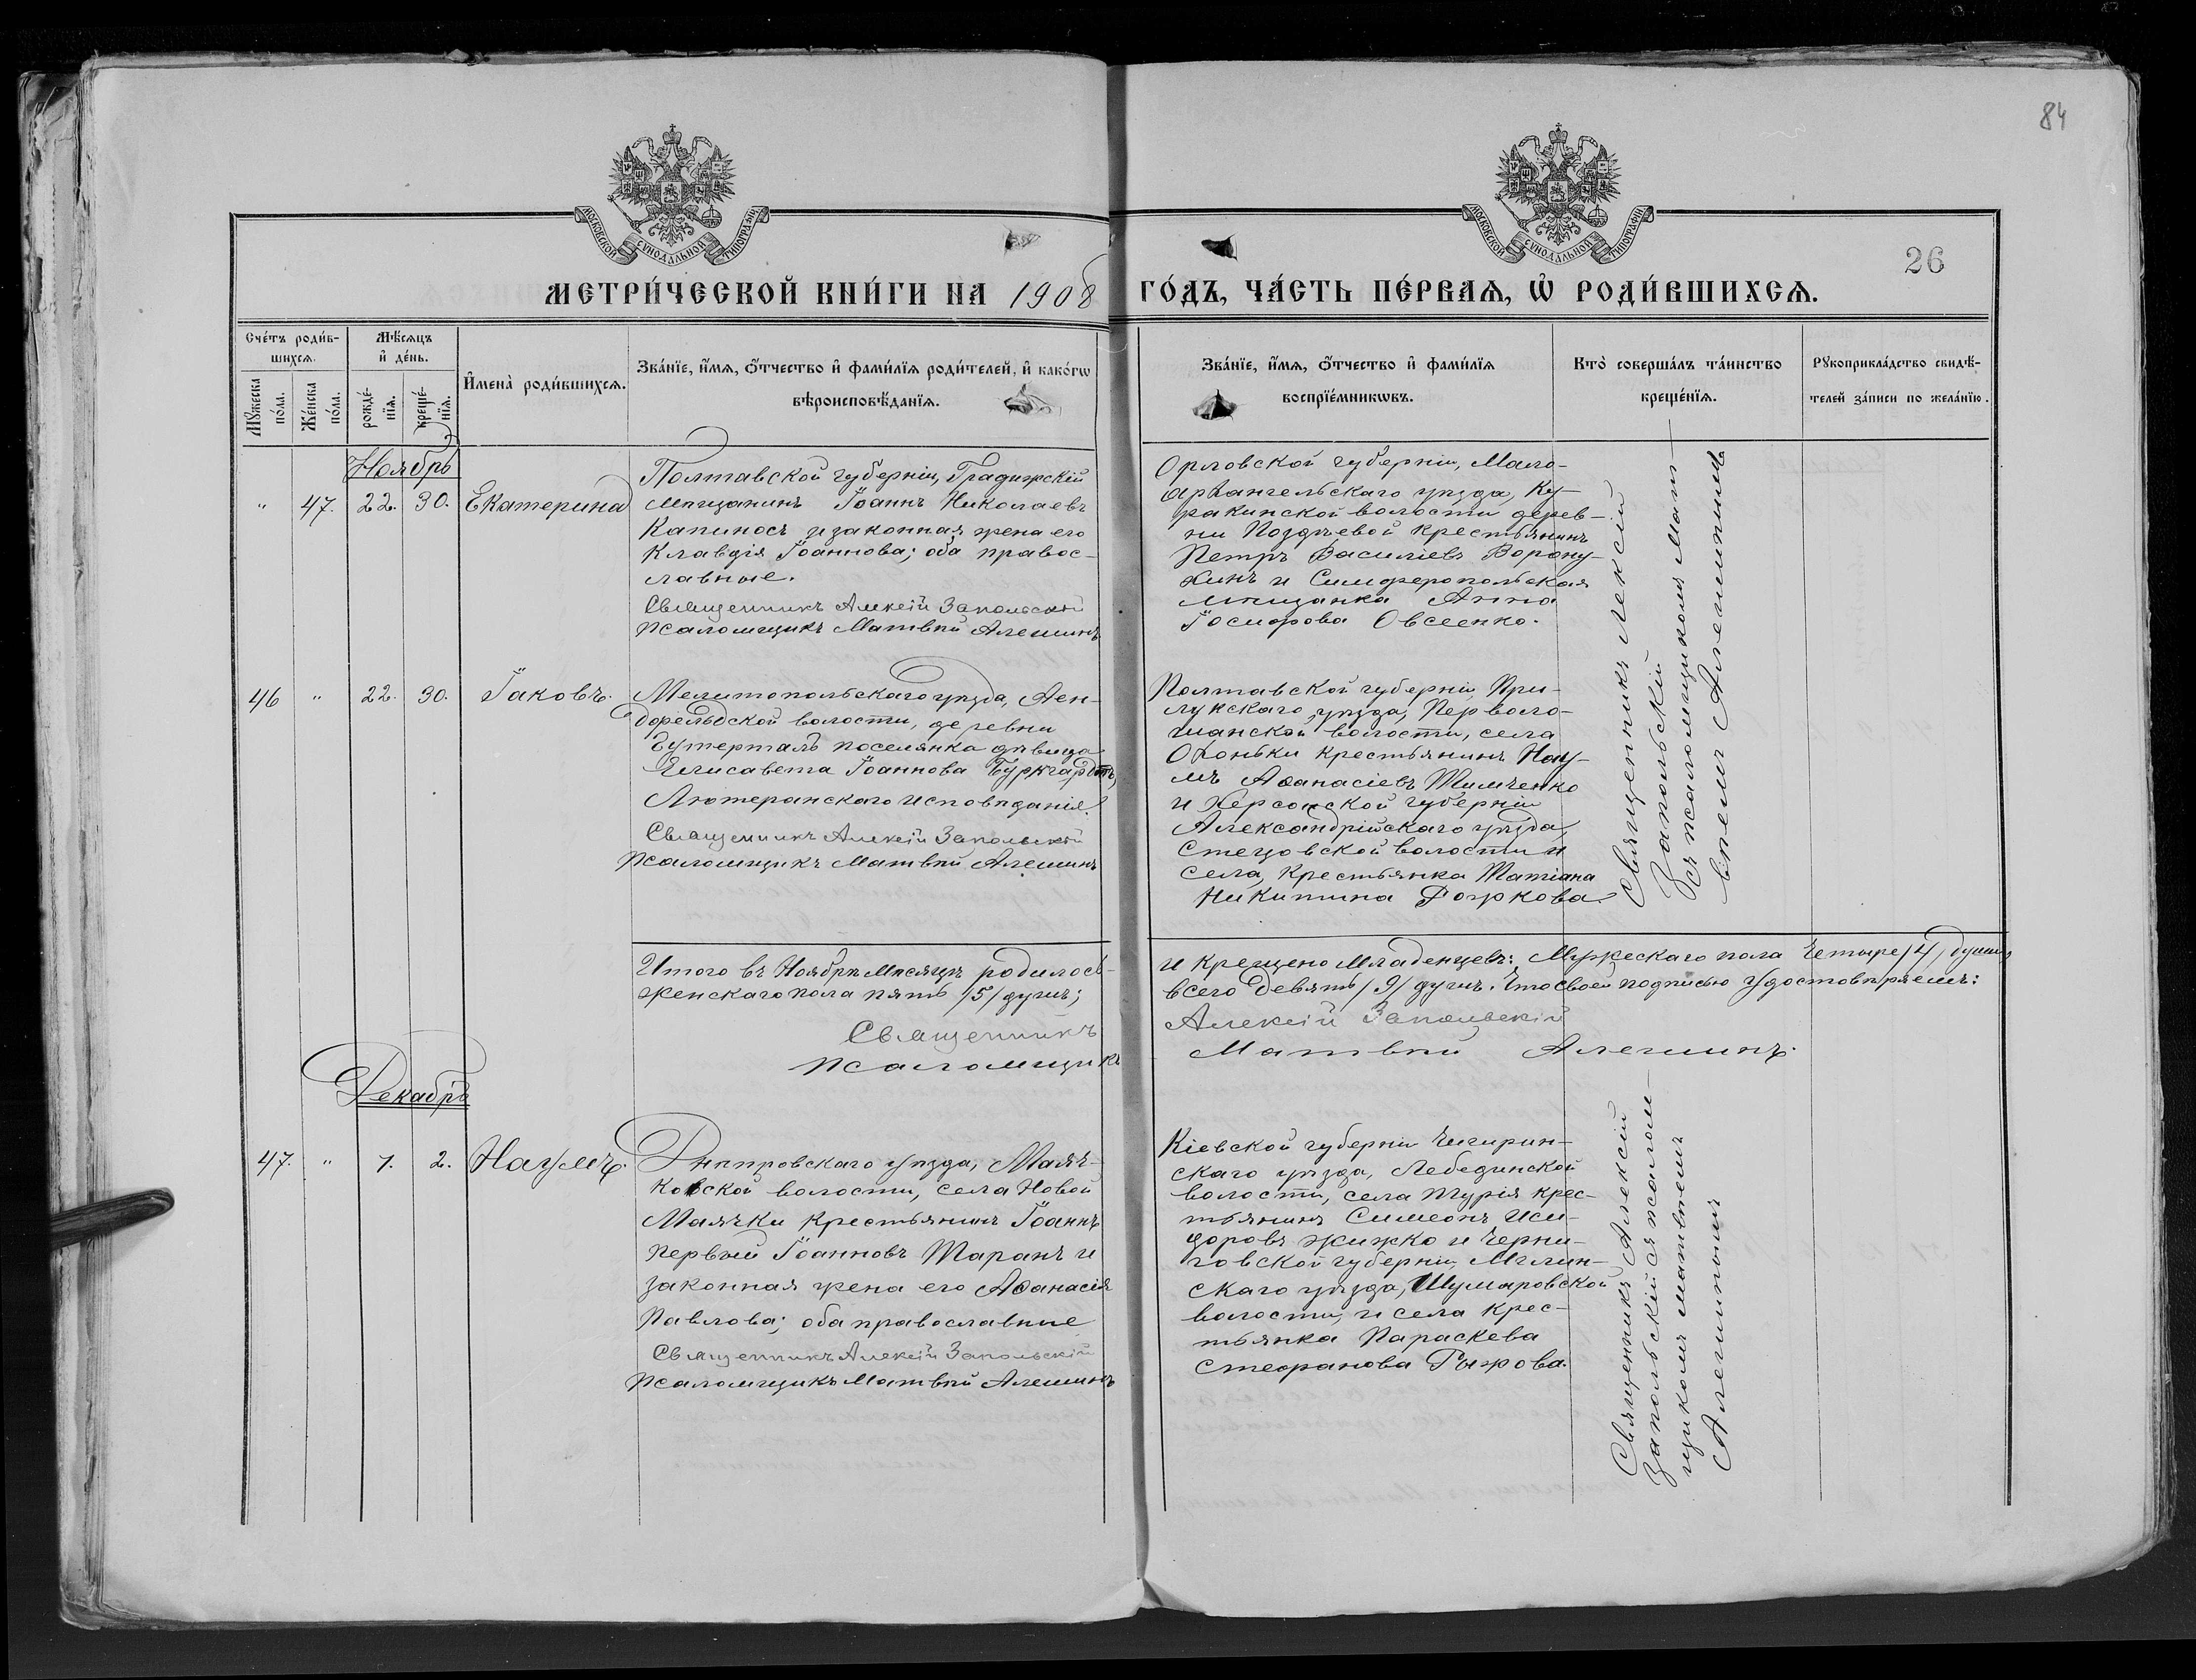 84
МОСКОВСКОЙ СѴНОДАЛЬНОЙ ТИПОГРАФІИ
МОСКОВСКОЙ СѴНОДАЛЬНОЙ ТИПОГРАФІИ
26
МЕТРИ́ЧЕСКОЙ КНИ́ГИ НА 1908 ГО́ДЪ, ЧА́СТЬ ПЕ́РВАЯ, Ѡ РОДИ́ВШИХСЯ.
Сче́тъ роди́в-
шихся.
Мѣ́сяцъ
и де́нь.
Му́жеска по́ла.
Же́нска по́ла.
рожде́-
нїя.
креще́-
нїя.
Имена̀ роди́вшихся.
Зва́нїе, и́мя, о́тчество и фами́лїя роди́телей, и како́гѡ
вѣроисповѣ́данїя.
Зва́нїе, и́мя, о́тчество и фами́лїя
воспрїе́мникѡвъ.
Кто̀ соверша́лъ та́инство
креще́нїя.
Рукоприкла́дство свидѣ́-
телей за́писи по жела́нїю.
Ноябрь
" 47. 22. 30. Екатерина
Полтавской губерніи, Градижскій
мѣщанинъ Іоаннъ Николаевъ
Капиносъ и законная жена его
Клавдія Іоаннова; оба правос-
лавные.
Священникъ Алексій Запольскій
Псаломщикъ Матвѣй Алешинъ
Орловской губерніи, Мало-
архангельскаго уѣзда, Ку-
ракинской волости дерев-
ни Поздѣевой крестьянинъ
Петръ Василіевъ Ворону-
хинъ и Симферопольская
мѣщанка Анна
Іосифова Овсеенко.
Священникъ Алексій
Запольскій
съ псаломщикомъ Мат-
вѣемъ Алешинымъ
46 " 22. 30. Іаковъ.
Мелитопольскаго уѣзда, Эйген-
фельдской волости, деревни
поселянка дѣвица
Елисавета Іоаннова Бургардтъ,
Лютеранскаго исповѣданія.
Священникъ Алексій Запольскій
Псаломщикъ Матвѣй Алешинъ
Полтавской губерніи При-
лукскаго уѣзда, Переволо-
чанской волости, села
Ѳоаньки крестьянинъ Нау-
мъ Аѳанасіевъ Тимченко
и Херсонской губерніи
Александрійскаго уѣзда,
Стецовской волости и
села, крестьянка Татіана
Никитина
Итого въ Ноябрѣ мѣсяцѣ родилось
женскаго пола пять /5/ душъ;
Священникъ
Псаломщикъ
и крещено младенцевъ: Мужескаго пола четыре /4/ души,
всего девять /9/ душъ. Что своей подписью удостовѣряемъ:
Алексій Запольскій
Матвѣй Алешинъ.
Декабрь
47. " 1. 2. Наумъ.
Днѣпровскаго уѣзда, Маяч-
ковской волости, села Новой
Маячки крестьянинъ Іоаннъ
первый Іоанновъ Таранъ и
законная жена его Аѳанасія
Павлова; оба православные
Священникъ Алексій Запольскій
Псаломщикъ Матвѣй Алешинъ
Кіевской губерніи Чигирин-
скаго уѣзда, Лебединской
волости, села Турія крес-
тьянинъ Симеонъ Иси-
доровъ Жижко и Черни-
говской губерніи, Мглин-
скаго уѣзда, Шумаровской
волости, и села крес-
тьянка Параскева
Стефанова Рыжова.
Священникъ Алексій
Запольскій съ псалом-
щикомъ Матвѣемъ
Алешинымъ